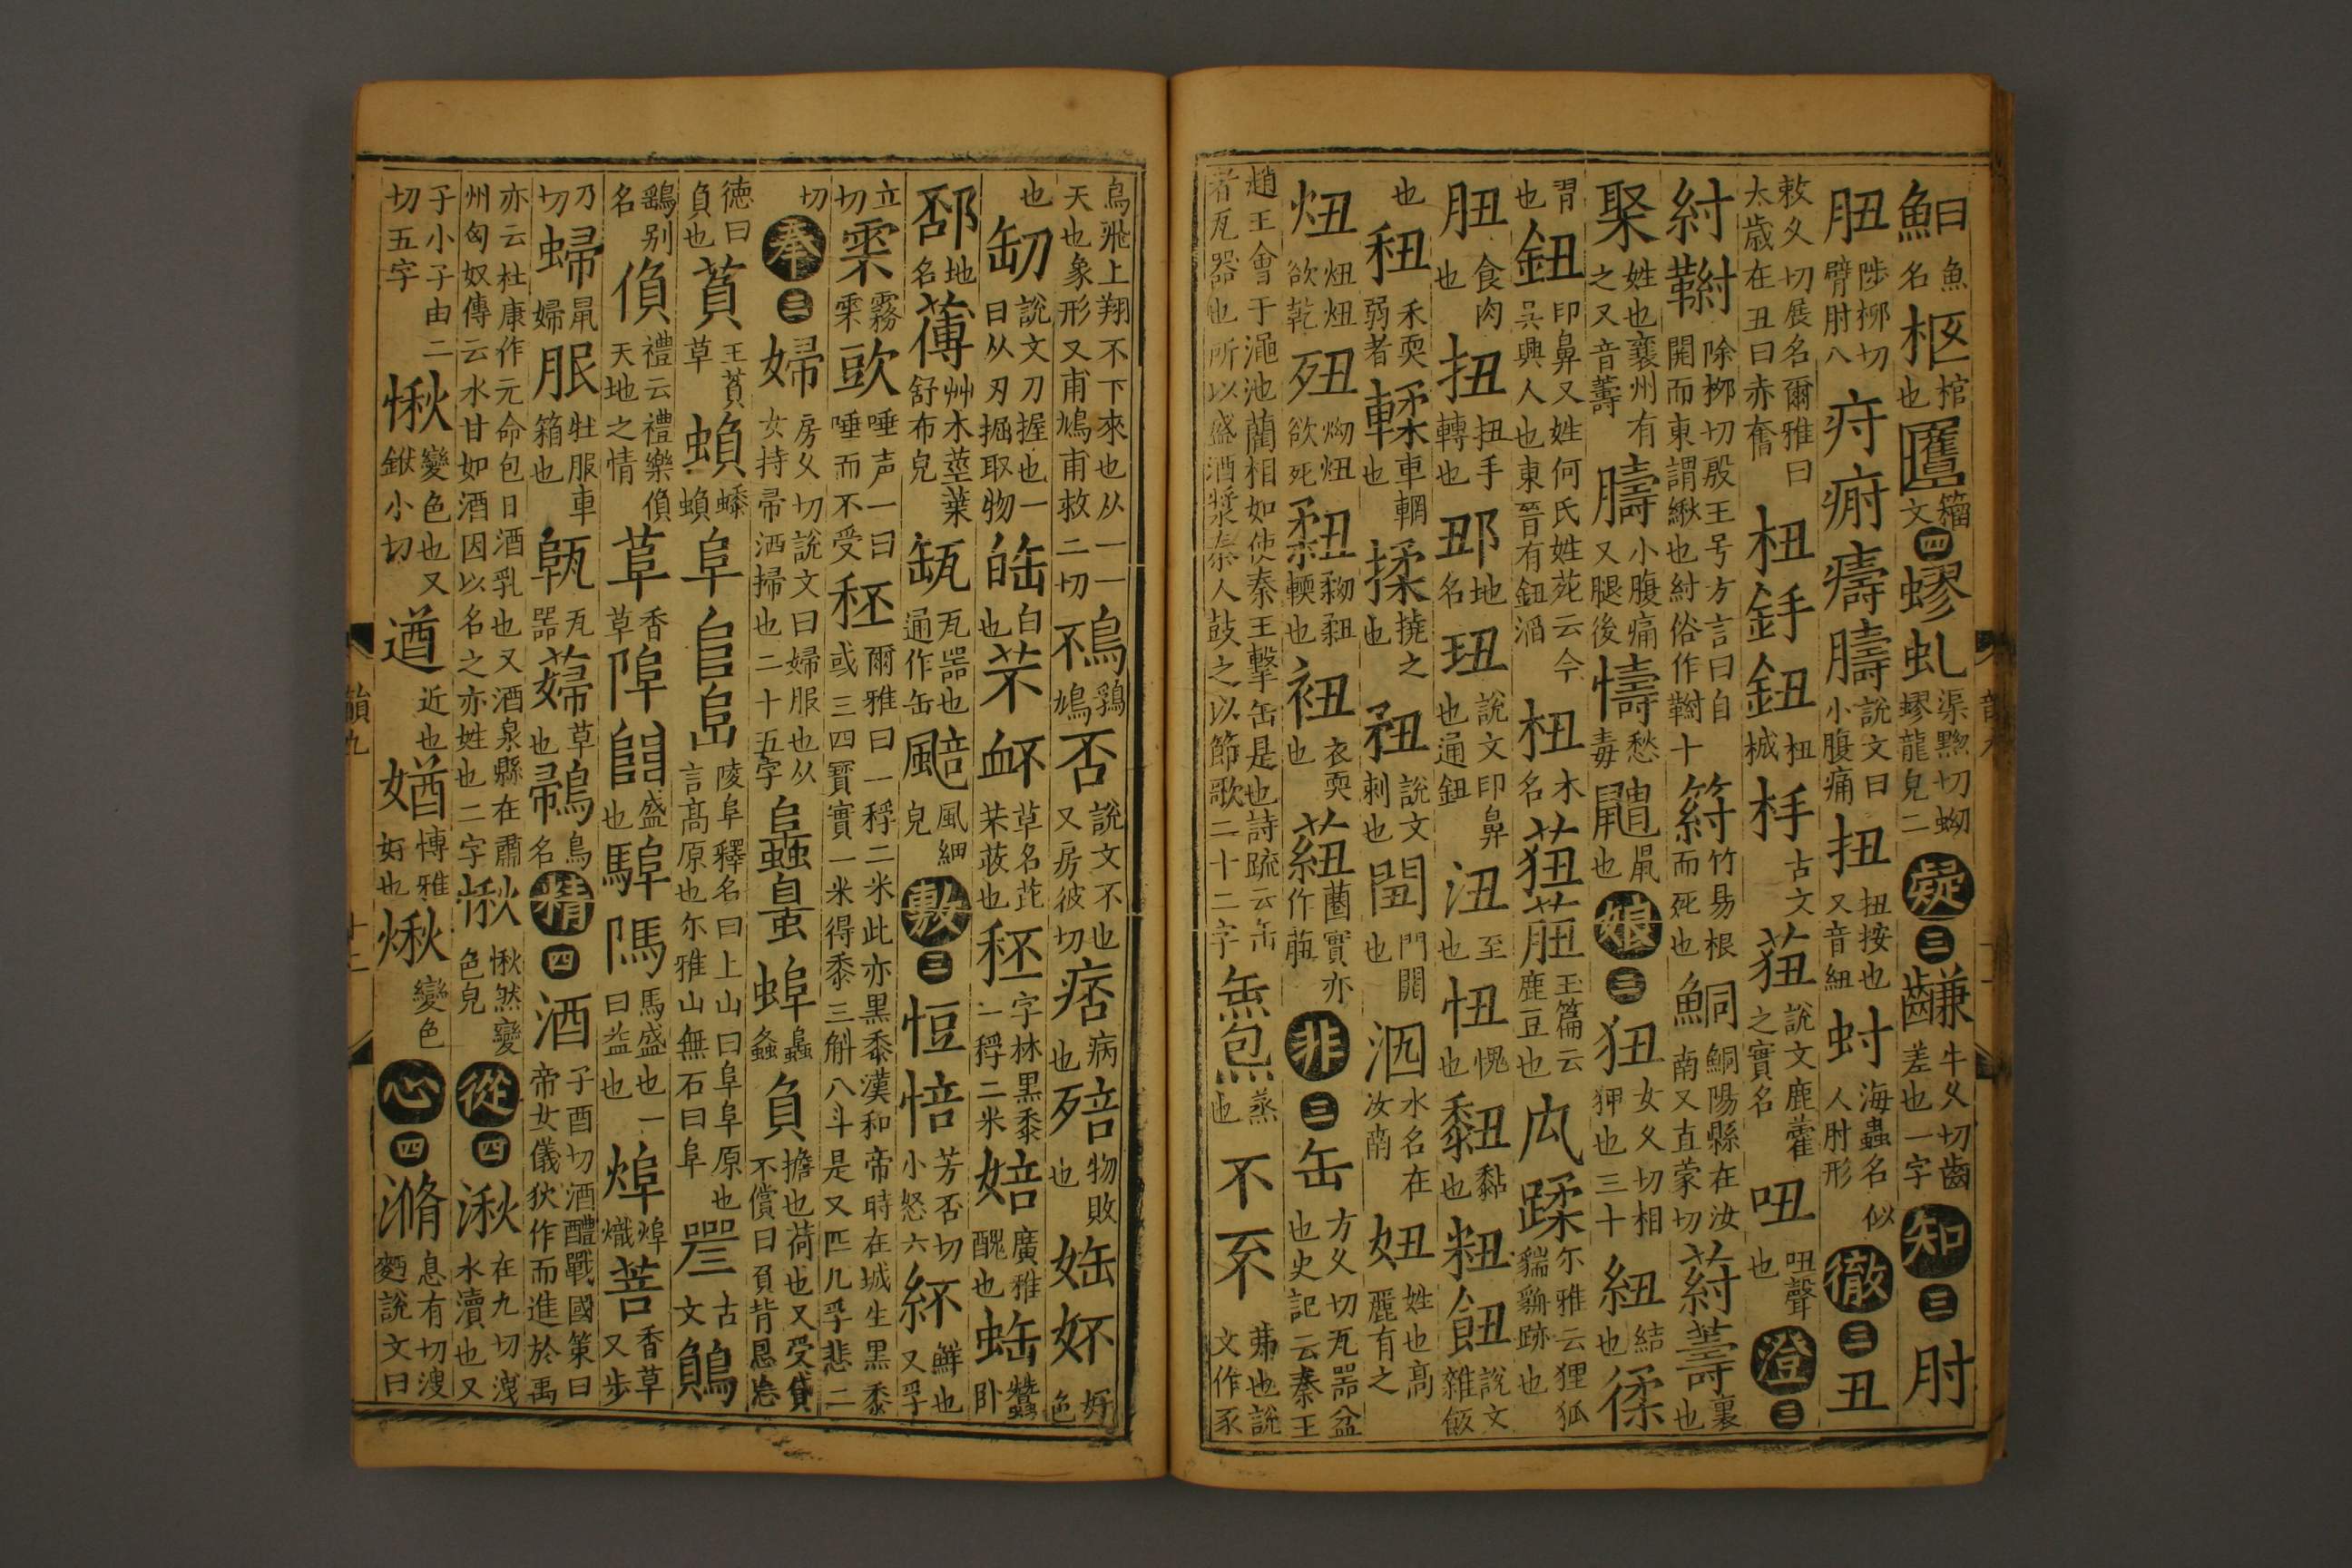 䱓魚名柩棺也匶籀文四蟉虬渠黝切蚴蟉龍皃二疑三齴牛久切齒差也一字知三肘
肘陟柳切臂肘八疛疛㿒䐭說文曰小腹痛扭扭按也又音紐䖡海蟲名似人肘形徹三丑
敕久切展名爾雅曰太歲在丑曰赤奮杻𨥫鈕杻械杽古文莥說文鹿藿之實名吜吜聲也澄三
紂䩜除柳切殷王号方言曰自關而東謂緧也紂俗作䩜十䈙竹易根而死也鮦鮦陽縣在汝南又直蒙切葤薵裹也
聚姓也襄州有之又音薵䐭小腹痛又腿後懤愁毒鼠也娘三狃女久切相狎也三十紐結也䋴
習也鈕印鼻又姓何氏姓苑云今吳興人也東晉有鈕滔杻木名莥䒺玉篇云鹿豆也禸蹂尓雅云狸狐貒貈跡也
肚食肉也扭扭手轉也䢇地名玨說文印鼻也通鈕沑至也忸愧也䵑黏也粈飿說文雜飯
也䄪禾耎弱者輮車輞也揉撓之也䂇說文刺也䦦門開也沑水名在汝南妞姓也高麗有之
炄炄炄欲乾㱙𤆼炄欲死䂇𥹋䂇輭也衵衣耎也䒺蔨實亦作莥非三缶方久切瓦噐盆也史記云秦王
趙王會于澠池藺相如使秦王擊缶是也詩疏云缶者瓦器也所以盛酒漿秦人鼓之以節歌二十二字缹炰蒸也不𠀚弗也說文作𠀚
鳥飛上翔不下來也从一一天也象形又甫鳩甫救二切鴀鴀鳩否說文不也又房彼切痞病也㱟物敗也㛅妚好色
也缷說文刀握也一曰从刃掘取物䧏白也芣衃草名芘芣荍也秠字林黑黍一稃二米婄廣雅醜也䖣蠜卧
䣙地名䔰艸木莖葉舒布皃缻瓦噐也通作缶䬏風細皃敷三恒㤱芳否切小怒六紑鮮也又孚
立切䨏霧䨏㰴唾声一曰唾而不受秠爾雅曰一稃二米此亦黑黍漢和帝時在城生黑黍或三四實實一米得黍三斛八斗是又匹几孚悲二
切奉三婦房久切說文曰婦服也从女持帚洒掃也二十五字𧒂𧒂蜉𧒂螽負擔也荷也又受貸不償曰負背恩忘
德曰負也萯王萯草蝜蟠蝜阜𨸏𨸐陵阜釋名曰上山曰阜阜原也言高原也尓雅山無石曰阜𨺅古文鴭
鷂別名偩禮云禮樂偩天地之情草香草䧓𨺅盛也䮀䮀馬盛也一曰益也焷焷熾菩香草又步
乃切䗔鼠婦服牡服車箱也缻瓦噐䔰草也鴀鳥名精四酒子酉切酒醴戰國策曰帝女儀狄作而進於禹
亦云杜康作元命包曰酒乳也又酒泉縣在肅州匈奴傳云水甘如酒因以名之亦姓也二字愀愀然變色皃從四湫在九切洩水瀆也又
子小子由二切五字愀變色也又鍬小切遒近也媨博雅好也煍變色心四滫息有切溲麪說文曰
韻九
十二